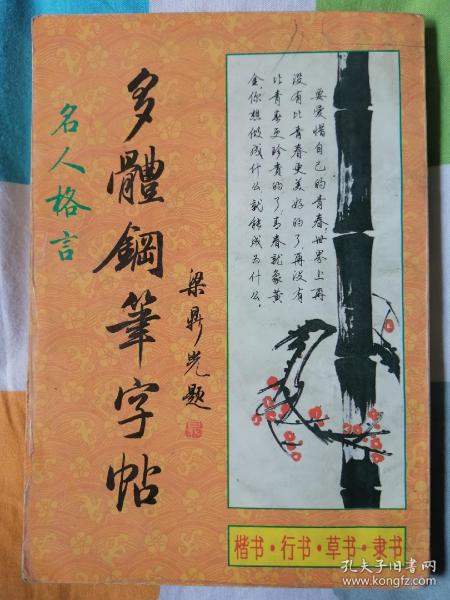 名人格言
多體鋼筆字帖
梁鼎光题
要爱惜自己的青春,世界上再
没有比青春更美好的了,再没有
比青春更珍贵的了,青春就象黄
金,你想做成什么就能成为什么。
楷书·行书·草书·隶书
孔夫子旧书网
www.kongfz.com